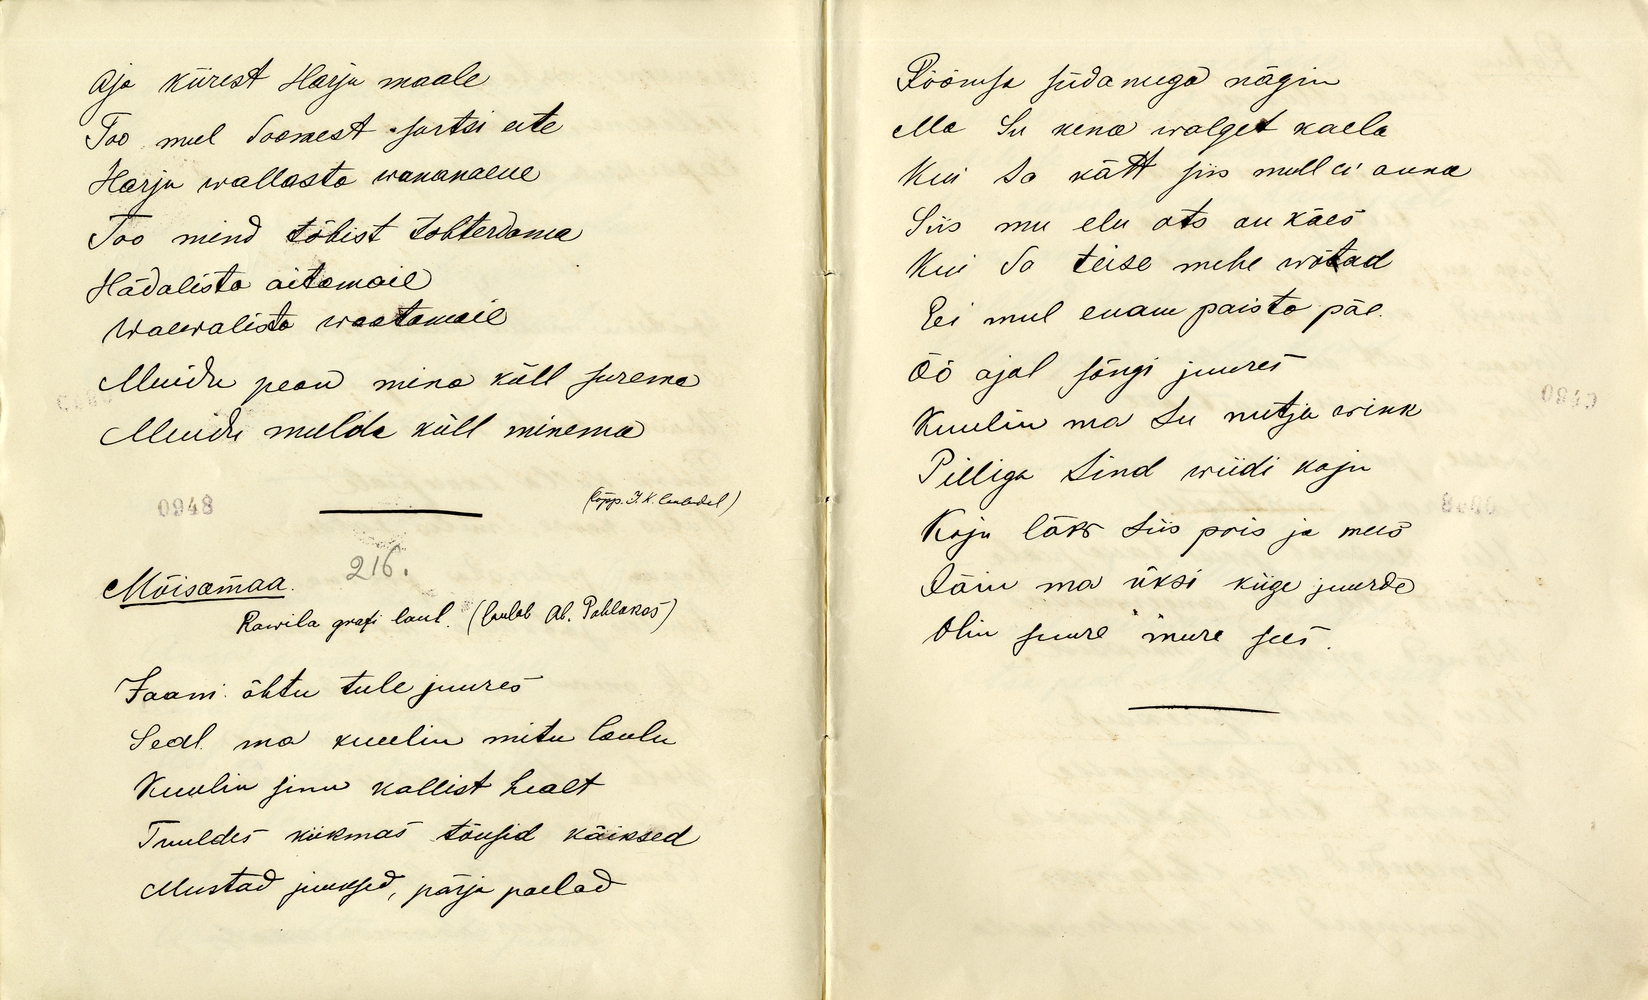 Aja kiirest Harju maale
Too mul Soomest sortsi eite
Harju wallasta wananaene
Too mind tõbist tohterdama
Hädalista aitamaie
Waewalista waatamaie
Muidu pean mina küll surema
Muidu mulda küll minema
0948
216.
Mõisamaa.
Rawila grafi laul. (laulab Ab. Pohlakas)
Jaani õhtu tule juures
Seal ma kuulin mitu laulu
Kuulin sinu kallist healt
Tuuldes kiikmas tõusid käiksed
Mustad juuksed, pärja paelad
Rõõmsa südamega nägin
Ma Su kena walget kaela
Kui Sa kätt siis mull ei anna
Siis mu elu ots on käes
Kui Sa teise mehe wõtad
Ei mul enam paista päe.
Öö ajal sängi juures
Kuulin ma Su nutja wiuk
Pilliga Sind wiidi koju
Koju läks siis pois ja mees
Jäin ma üksi kiige juurde
Olin suure mure sees.